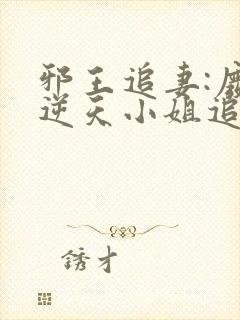 邪王追妻:废
逆天小姐追
锈才